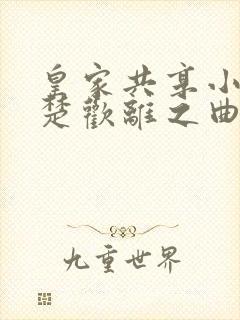 皇家共享小
楚歡離之曲
九重世界